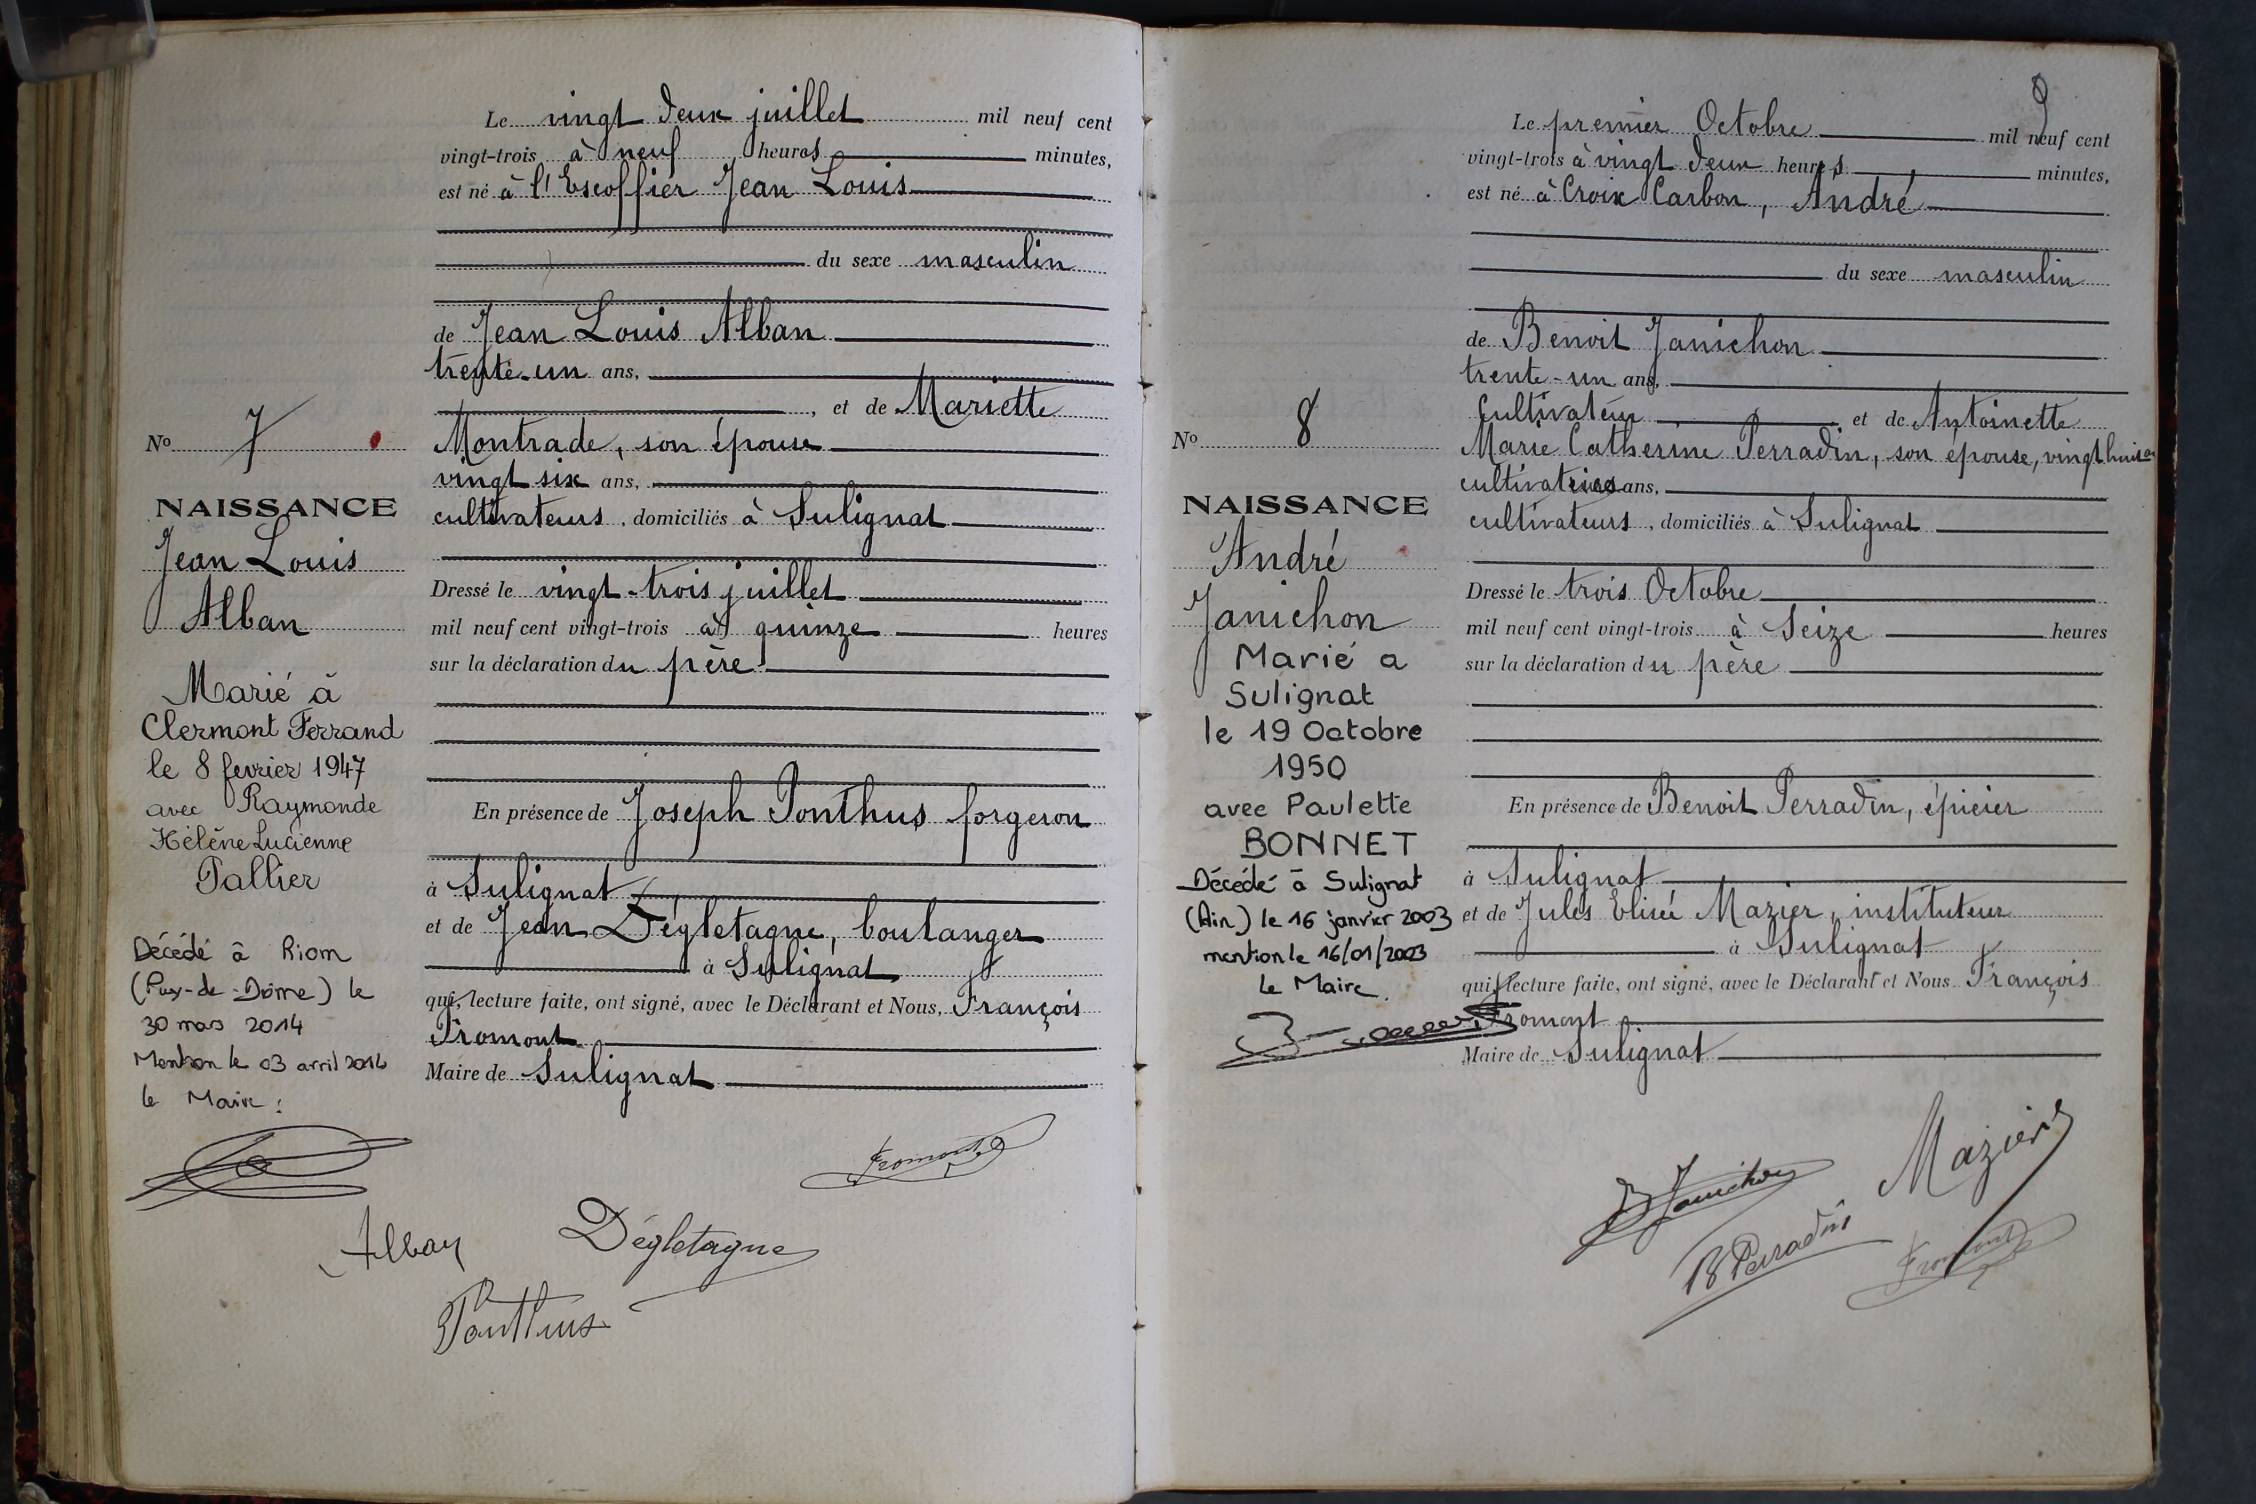 Le vingt deux juillet mil neuf cent
vingt-trois à neuf heures minutes,
est né à l'Escoffier Jean Louis
du sexe masculin
de Jean Louis Alban
trente-un ans,
, et de Mariette
Montrade, son épouse
vingt six ans,
cultivateurs, domiciliés à Sulignat
Dressé le vingt-trois juillet
mil neuf cent vingt-trois à quinze heures
sur la déclaration du père
En présence de Joseph Ponthus forgeron
à Sulignat
et de Jean Dégletagne, boulanger
à Sulignat
qui, lecture faite, ont signé, avec le Déclarant et Nous, François
Fromont
Maire de Sulignat
No 7
NAISSANCE
Jean Louis
Alban
Marié à
Clermont Ferrand
le 8 fevrier 1947
avec Raymonde
Hélène Lucienne
Pallier
Décédé à Riom
(Puy-de-Dôme) le
30 mars 2014
Mention le 03 avril 2014
le Maire :
Fromont
Alban
Dégletagne
Ponthus
9
Le premier Octobre mil neuf cent
vingt-trois à vingt deux heures minutes,
est né à Croix Carbon, André
du sexe masculin
de Benoit Janichon
trente-un ans,
cultivateur et de Antoinette
Marie Catherine Perradin, son épouse, vingt huit ans
ans,
cultivateurs, domiciliés à Sulignat
Dressé le trois Octobre
mil neuf cent vingt-trois à Seize heures
sur la déclaration du père
En présence de Benoit Perradin, épicier
à Sulignat
et de Jules Elisée Mazier, instituteur
à Sulignat
qui, lecture faite, ont signé, avec le Déclarant et Nous François
Fromont
Maire de Sulignat
No 8
NAISSANCE
André
Janichon
Marié a
Sulignat
le 19 Octobre
1950
avec Paulette
BONNET
Décédé à Sulignat
(Ain) le 16 janvier 2003
mention le 16/01/2003
Le Maire.
B Janichon
Mazier
B Perradin
Fromont